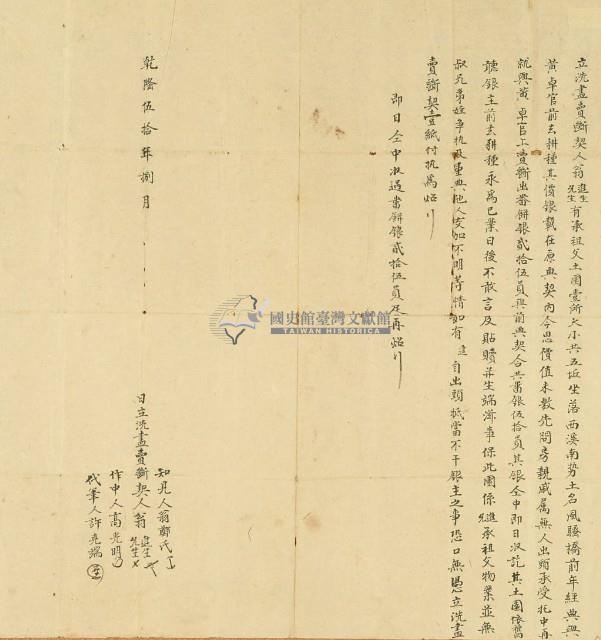 立洗盡賣斷契人翁進生先生有承祖父土園壹所大小共五坵坐落西溪南勢土名風騷橋前年經典與
黃卓官前去耕種其價銀載在原典契內今思價值未敷先問房親戚屬無人出頭承受托中再
就與黃卓官上賣斷出番銀貳拾伍員與前典契合共番銀伍拾員其銀仝中即日收訖其土園依舊
聽銀主前去耕種永為己業日後不敢言及貼贖并生端滋事保此園係進先承祖父物業並無
叔兄弟姪爭執及重典他人交加不明等情如有進自出頭抵當不干銀主之事恐口無憑立洗盡
賣斷契壹紙付執為炤
即日仝中收過番銀貳拾伍員足再炤
乾隆伍拾年捌月 日立洗盡賣斷契人翁進生先生
知見人翁鄭氏
作中人高光明
代筆人許克端
國史館臺灣文獻館
TAIWAN HISTORICA